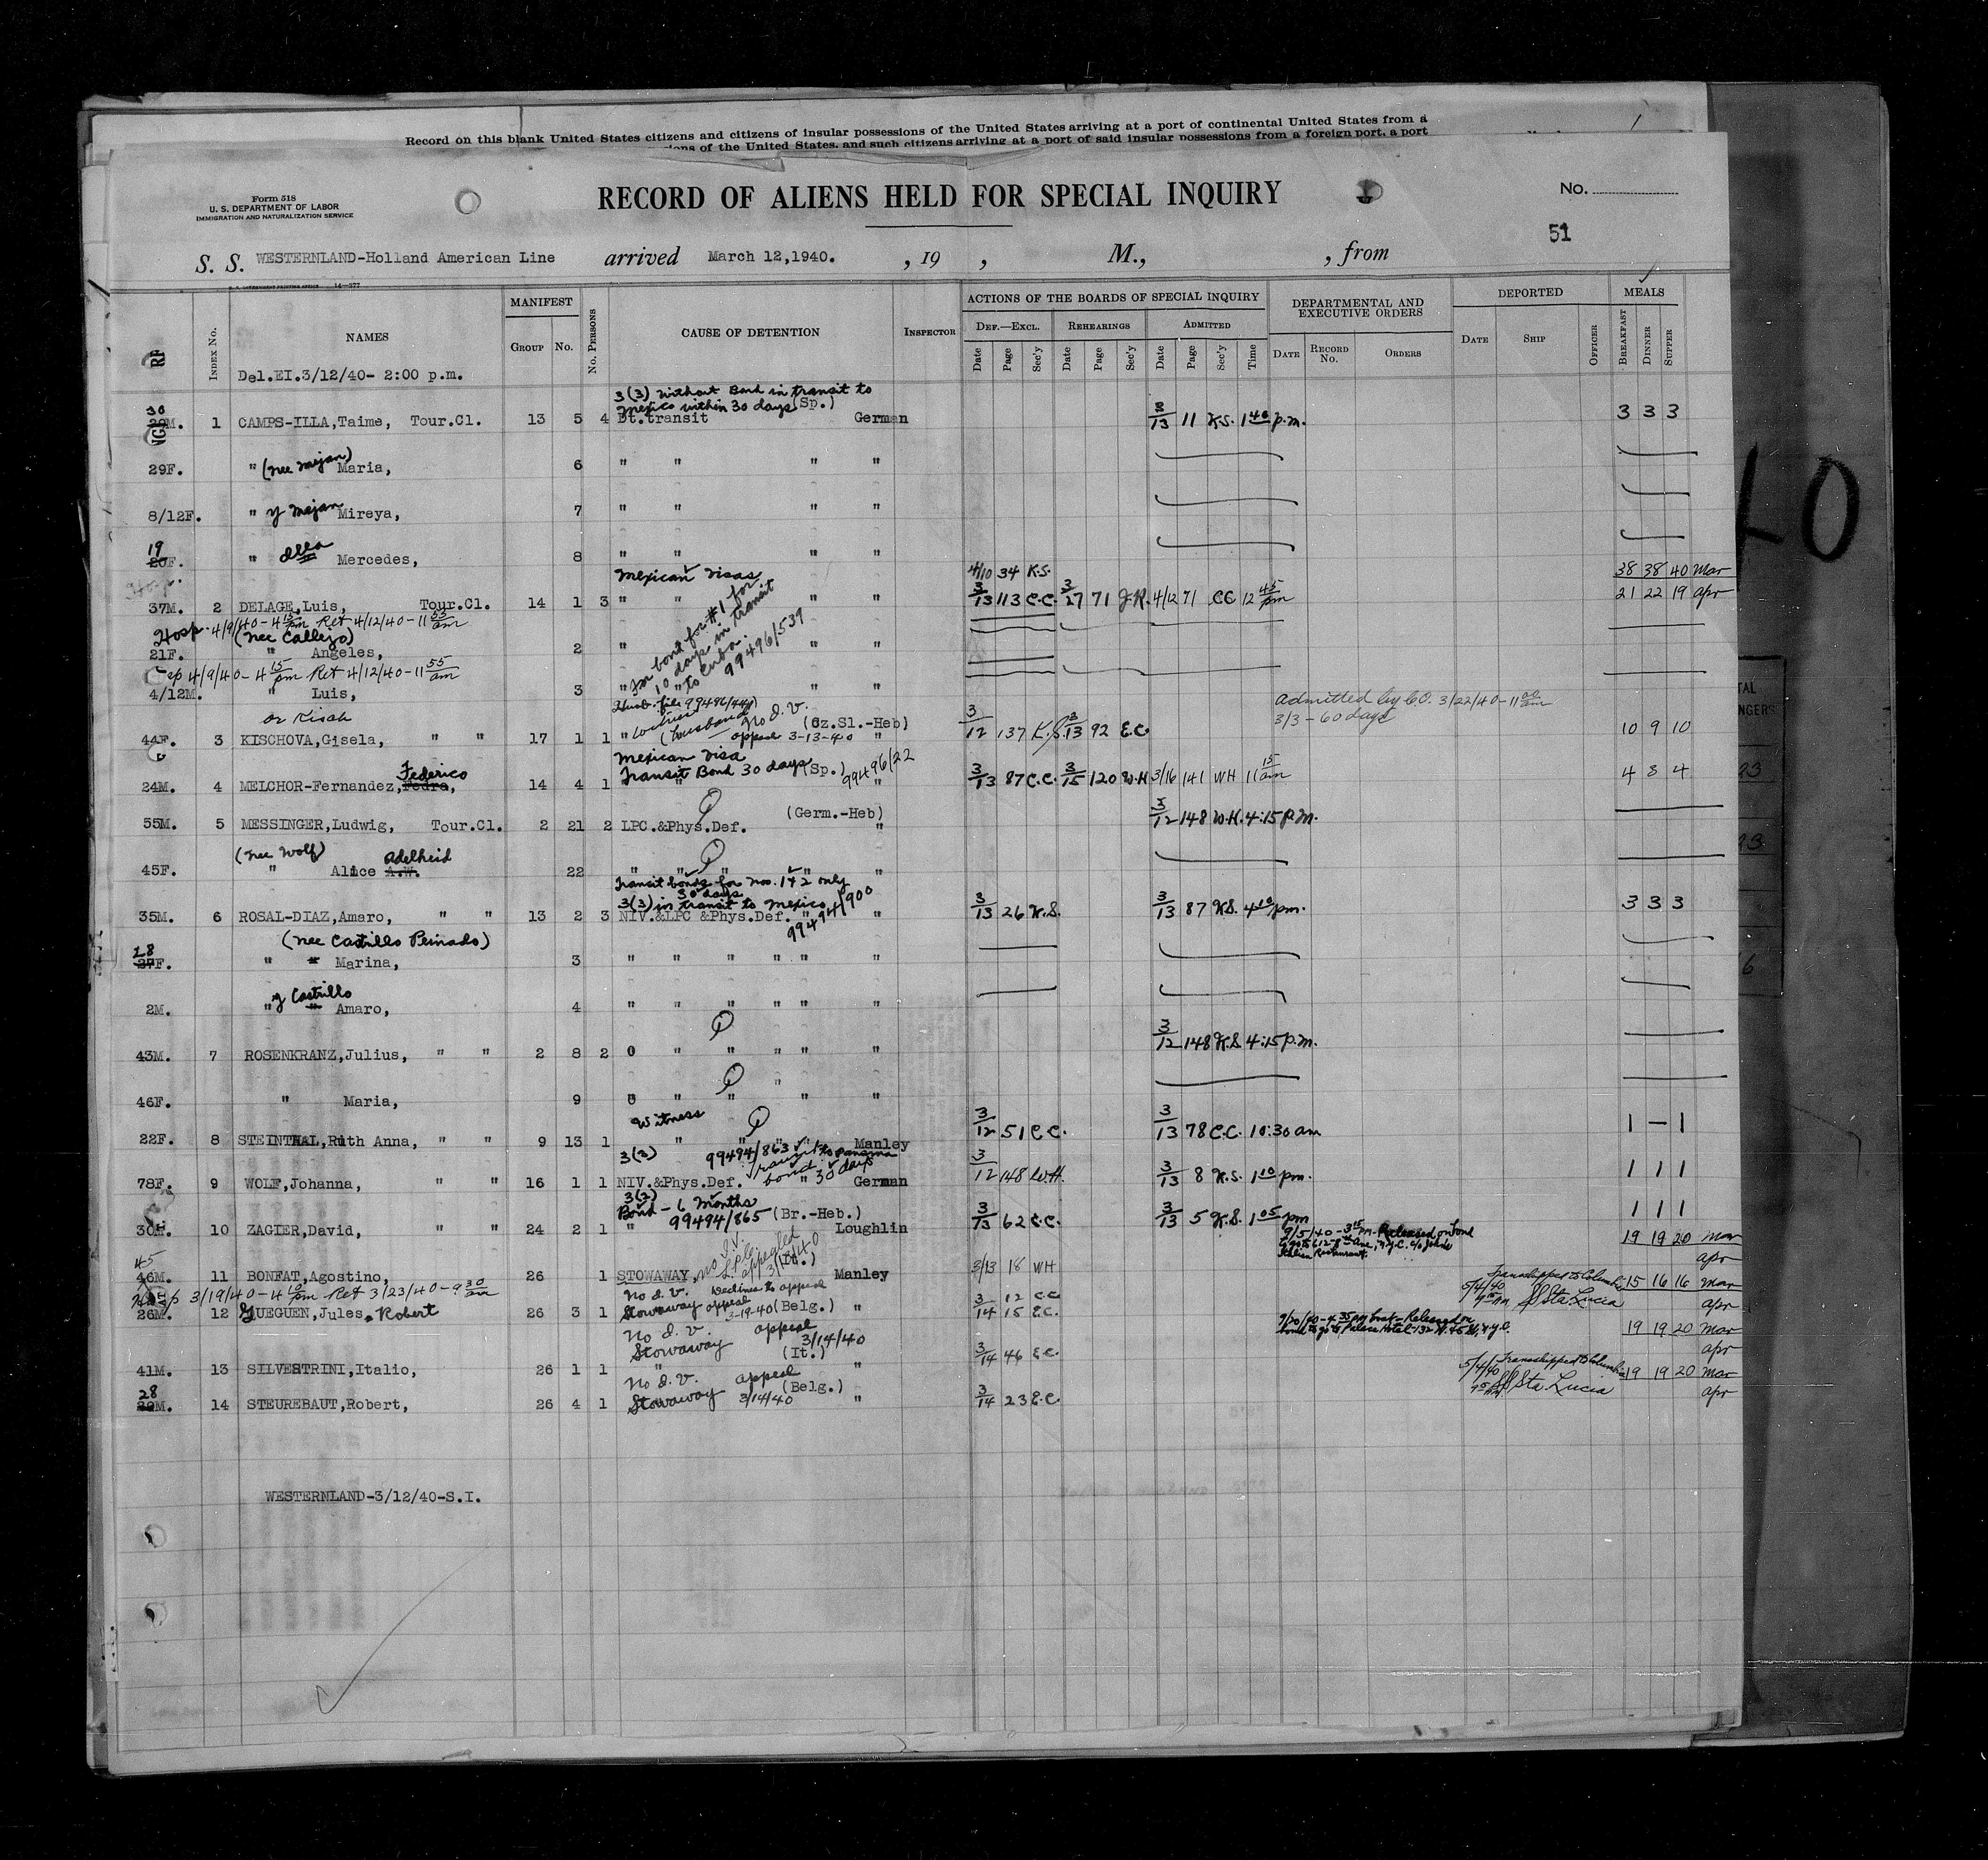 Record on this blank United States citizens and citizens of insular possessions of the United States arriving at a port of continental United States from a
of the United States, and such citizens arriving at a port of said insular possessions from a foreign port, a port
Form 518
U. S. DEPARTMENT OF LABOR
IMMIGRATION AND NATURALIZATION SERVICE
RECORD OF ALIENS HELD FOR SPECIAL INQUIRY
No.
51
S. S. WESTERNLAND-Holland American Line arrived March 12,1940. , 19 , M., , from
MANIFEST ACTIONS OF THE BOARDS OF SPECIAL INQUIRY DEPARTMENTAL AND EXECUTIVE ORDERS DEPORTED MEALS
INDEX No. NAMES GROUP No. No. PERSONS CAUSE OF DETENTION INSPECTOR DEF.—EXCL. REHEARINGS ADMITTED
Date Page Sec'y Date Page Sec'y Date Page Sec'y Time DATE RECORD No. ORDERS DATE SHIP OFFICER BREAKFAST DINNER SUPPER
Del.EI.3/12/40- 2:00 p.m.
3(3) without Bond in transit to
Mexico within 30 days (Sp.)
30 M. 1 CAMPS-ILLA,Taime, Tour.Cl. 13 5 4 Dt.transit German 13 11 K.S. 1 40 p.m. 3 3 3
29F. " (nee Mejan) Maria, 6 " " " "
8/12F. " y Mejan Mireya, 7 " " " "
19
20F. " Illa Mercedes, 8 " " " "
Mexican visas 4/10 34 K.S. 38 38 40 Mar
37M. 2 DELAGE,Luis, Tour.Cl. 14 1 3 " " " " 3/13 113 C.C. 3/27 71 J.R. 4/12 71 CC 12 45 pm 21 22 19 Apr
Hosp. 4/9/40-4 15 pm Ret 4/12/40-11 55 am
(nee Callejo)
21F. " Angeles, 2 " " "
bond for #1 for
10 days in transit
to Cuba.
99496/539
4/9/40-4 15 pm Ret 4/12/40-11 55 am
4/12M. " Luis, 3 " " " "
Husb. file 99496/441
or Kisch no I.V. (Cz.Sl.-Heb)
admitted by C.O. 3/22/40-11 00 am
3/3-60 days
44F. 3 KISCHOVA,Gisela, " " 17 1 1 " (husband) appeal 3-13-40 " 3/12 137 K.S. 3/13 92 E.C. 10 9 10
Mexican visa
Federico Transit Bond 30 days (Sp.) 99496/22
24M. 4 MELCHOR-Fernandez,Pedro, 14 4 1 " " 3/13 87 C.C. 3/15 120 W.H 3/16 141 WH 11 15 am 4 8 4
(Germ.-Heb)
55M. 5 MESSINGER,Ludwig, Tour.Cl. 2 21 2 LPC.&Phys.Def. " 3/12 148 W.H. 4:15 P.M.
(nee Wolf) Adelheid
45F. " Alice A.W. 22 " " " " "
Transit bonds for nos. 1 & 2 only
30 days
3(3) in transit to Mexico 99494/900
35M. 6 ROSAL-DIAZ,Amaro, " " 13 2 3 NIV.&LPC &Phys.Def. " " 3/13 26 K.S. 3/13 87 K.S. 4 10 pm. 3 3 3
(nee Castrillo Peinado)
28
27F. " " Marina, 3 " " " " " "
y Castrillo
2M. " " Amaro, 4 " " " " " "
43M. 7 ROSENKRANZ,Julius, " " 2 8 2 " " " " " 3/12 148 K.S. 4:15 P.M.
46F. " Maria, 9 " " " " "
Witness
22F. 8 STEINTHAL,Ruth Anna, " " 9 13 1 " " " " Manley 3/12 51 C.C. 3/13 78 C.C. 10:30 am 1 — 1
3(3) 99494/863 transit to Panama
bond 30 days
78F. 9 WOLF,Johanna, " " 16 1 1 NIV.&Phys.Def. " German 3/12 148 W.H. 3/13 8 K.S. 1 10 pm. 1 1 1
3(2)
Bond - 6 Months
99494/865 (Br.-Heb.)
30M. 10 ZAGIER,David, " " 24 2 1 " Loughlin 3/13 62 C.C. 3/13 5 K.S. 1 05 pm 1 1 1
9/5/40-3 15 PM-Released on bond
Italian Restaurant.
45 no I.V. L.P.C. appealed 3/13/40 (It.) 19 19 20 Mar
46M. 11 BONFAT,Agostino, 26 1 STOWAWAY, Manley 3/13 18 WH Apr
Hosp 3/19/40-4 10 pm Ret 3/23/40-9 30 am
no I.V. Declines to appeal
Transhipped to Columbia 15 16 16 Mar
26M. 12 GUEGUEN,Jules, Robert 26 3 1 Stowaway appeal 3-19-40 (Belg.) " 3/14 12 C.C. 15 E.C. 5/4/40 SS Sta. Lucia Apr
No I.V. appeal
Stowaway 3/14/40 (It.)
9/20/40-4 35 PM boat-Released on
bond to go to Palace Hotel-132 W. 45 St, N.Y.C. 19 19 20 Mar
41M. 13 SILVESTRINI,Italio, 26 1 1 " " 3/14 46 E.C. Apr
28 No I.V. appeal (Belg.) 5/4/40 Transhipped to Columbia 19 19 20 Mar
29M. 14 STEUREBAUT,Robert, 26 4 1 Stowaway 3/14/40 " 3/14 23 E.C. SS Sta. Lucia Apr
WESTERNLAND-3/12/40-S.I.